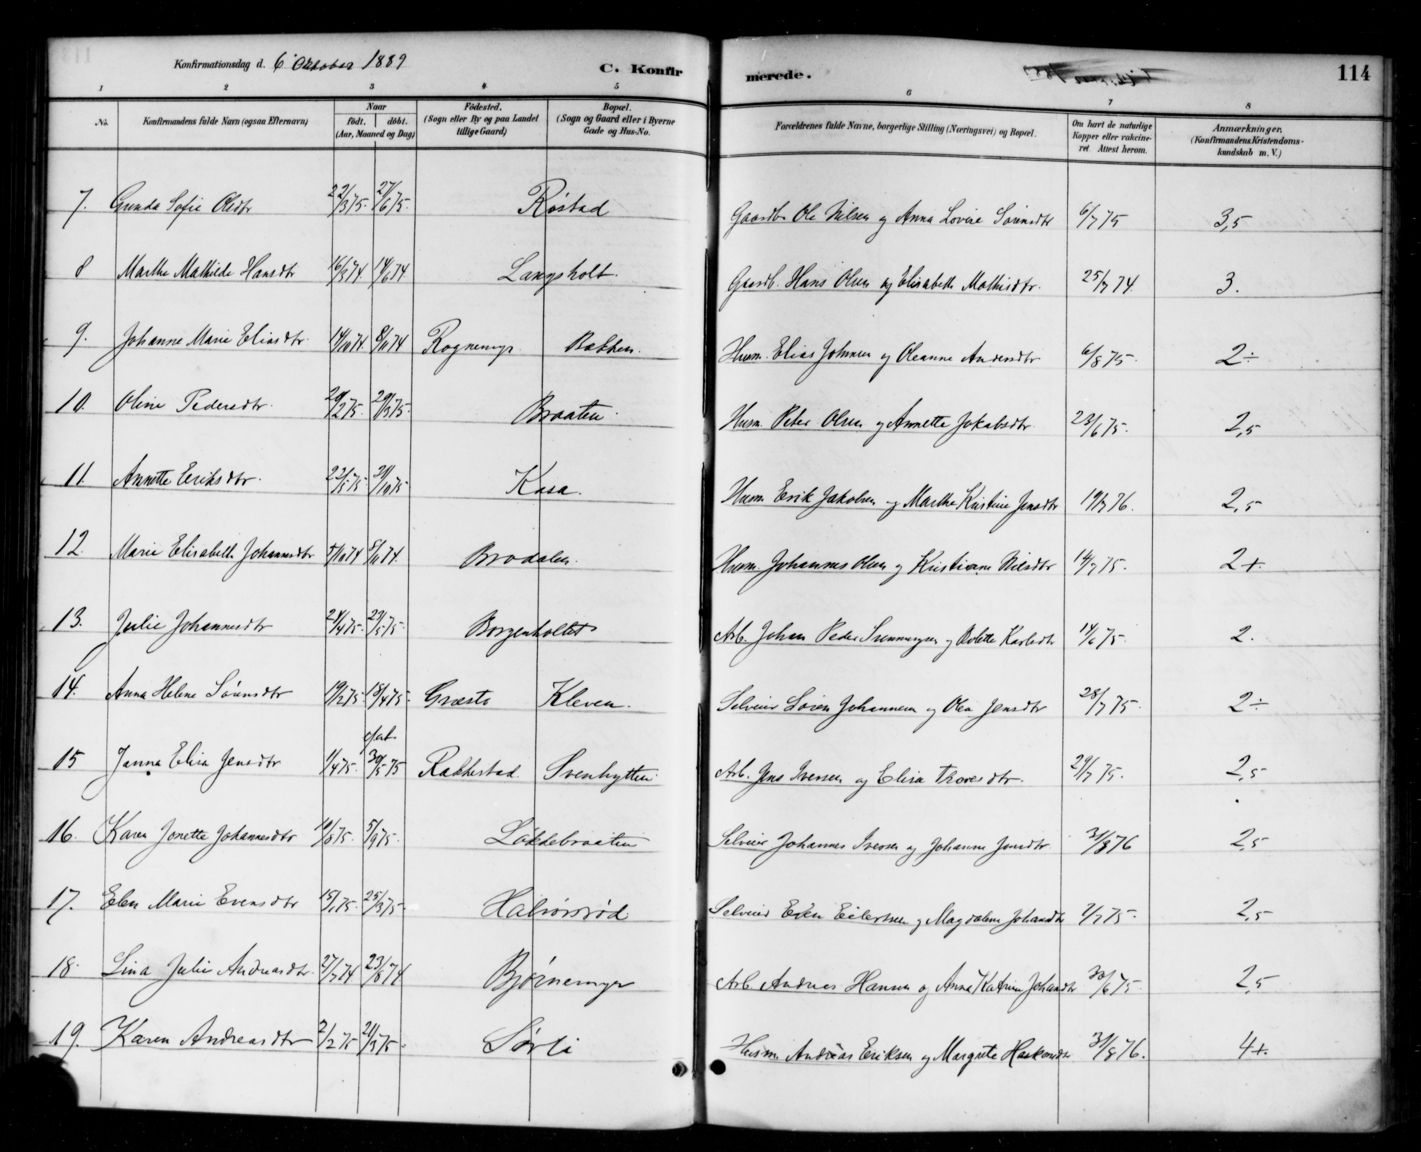 Konfirmationsdag d. 6 Oktober 1889 C. Konfirmerede. 114
1 2 3 4 5 6 7 8
No. Konfirmandens fulde Navn (ogsaa Efternavn) Naar født. døbt. (Aar, Maaned og Dag) Fødested. (Sogn eller By og paa Landet tillige Gaard) Bopæl. (Sogn og Gaard eller i Byerne Gade og Hus-No.) Forældrenes fulde Navne, borgerlige Stilling (Næringsvei) og Bopæl. Om havt de naturlige Kopper eller vakcineret Attest herom. Anmærkninger. (Konfirmandens Kristendomskundskab m. V.)
7. Gunda Sofie Olsdtr 22/3 75. 27/6 75. Røstad Gaardb. Ole Nilsen og Anna Lovise Sørensdtr 6/7 75 3,5
8 Marthe Mathilde Hansdtr 16/3 74 14/6 74 Langsholt. Gaardb. Hans Olsen og Elisabeth Mathisdtr. 25/7 74 3.
9. Johanne Marie Eliasdtr. 14/10 74 8/11 74 Rognemyr Bakken. Husm. Elias Johnsen og Oleanne Andersdtr 6/8 75 2÷
10. Oline Pedersdtr. 20/2 75. 29/3 75. Braaten. Husm. Peter Olsen og Annette Jakobsdtr. 23/6 75. 2,5
11. Annette Eriksdtr. 22/5 75 31/10 75 Kasa. Husm. Erik Jakobsen og Marthe Kristine Jensdtr 19/7 76. 2,5
12. Marie Elisabeth Johannesdtr 4/10 74 8/11 74. Brodalen. Husm. Johannes Olsen og Kristiane Nilsdtr 14/7 75. 2+.
13. Julie Johannesdtr 24/4 75. 23/5 75. Borgenholtet Arb. Johan Peder Svenningsen og Bolette Karlsdtr 14/6 75. 2.
14. Anna Helene Sørensdtr 19/2 75 18/4 75. Græsto Kleven. Selveier Søren Johannesen og Olea Jensdtr 28/7 75. 2÷
15 Janna Elisa Jensdtr 1/4 75. 30/5 75 Rakkestad. Svenhytten Arb. Jens Iversen og Elisa Thoresdtr. 29/7 75. 2,5
16. Karen Jonette Johannesdtr 10/8 75. 5/9 75. Løkkebraaten Selveier Johannes Iversen og Johanne Jensdtr 31/8 76 2,5
17. Elen Marie Evensdtr 15/1 75. 25/3 75. Halvorsrød Selveier Even Eilertsen og Magdalene Johansdtr 7/7 75. 2,5
18. Lina Julie Andreasdtr. 27/7 74 23/8 74 Bjørnemyr Arb. Andreas Hansen og Anna Katrine Johansdtr 30/6 75. 2,5
19. Karen Andreasdtr 2/2 75 21/3 75. Sørli Husm. Andreas Eriksen og Margrete Haakensdtr 31/8 76. 4+.